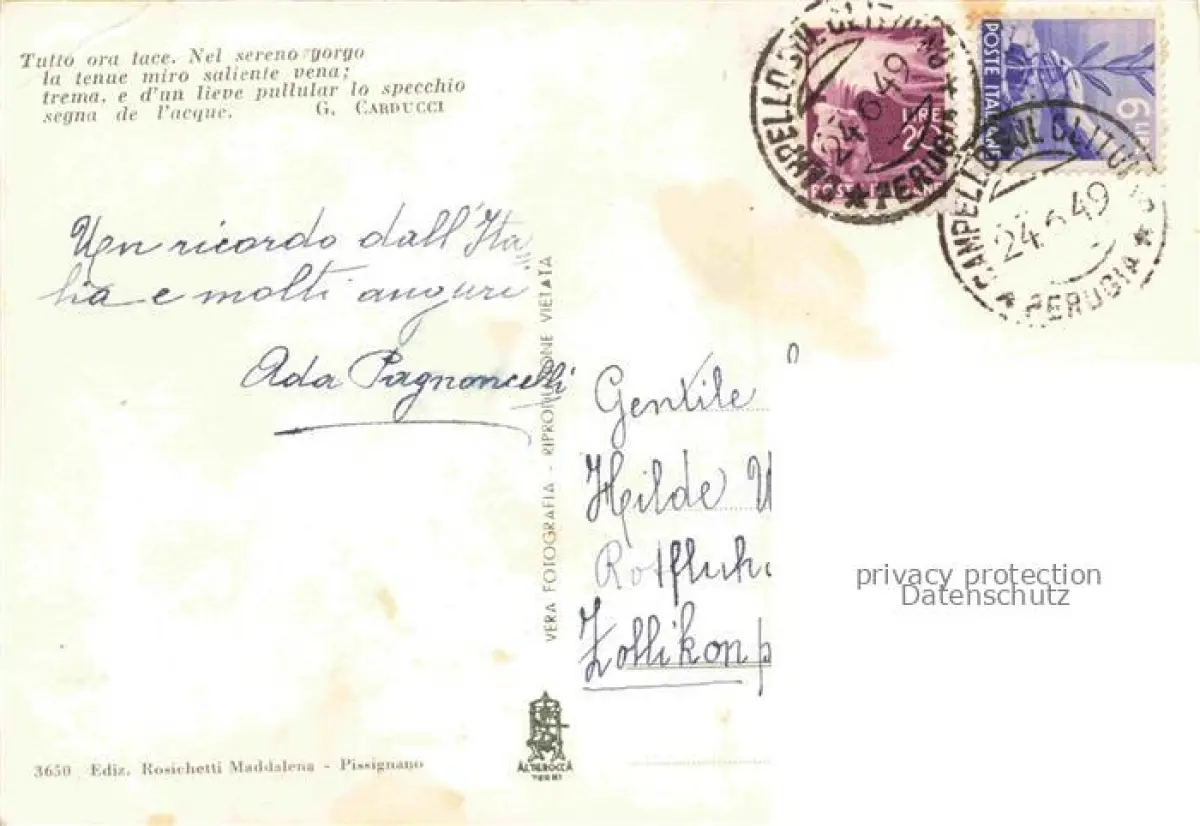 Tutto ora tace. Nel sereno gorgo
la tenue miro saliente vena;
trema, e d'un lieve pullular lo specchio
segna de l'acque. G. CARDUCCI
CAMPELLO SUL CLITUNNO
24.6.49
★ PERUGIA ★
LIRE
20
POSTE ITALIANE
POSTE ITALIANE
6 LIRE
CAMPELLO SUL CLITUNNO
24.6.49
★ PERUGIA ★
Un ricordo dall'Ita
lia e molti auguri
Ada Pagnoncelli
VERA FOTOGRAFIA - RIPRODUZIONE VIETATA
Gentile
Hilde
Zollikon
privacy protection
Datenschutz
3650 Ediz. Rosichetti Maddalena - Pissignano
ALTEROCCA
TERNI